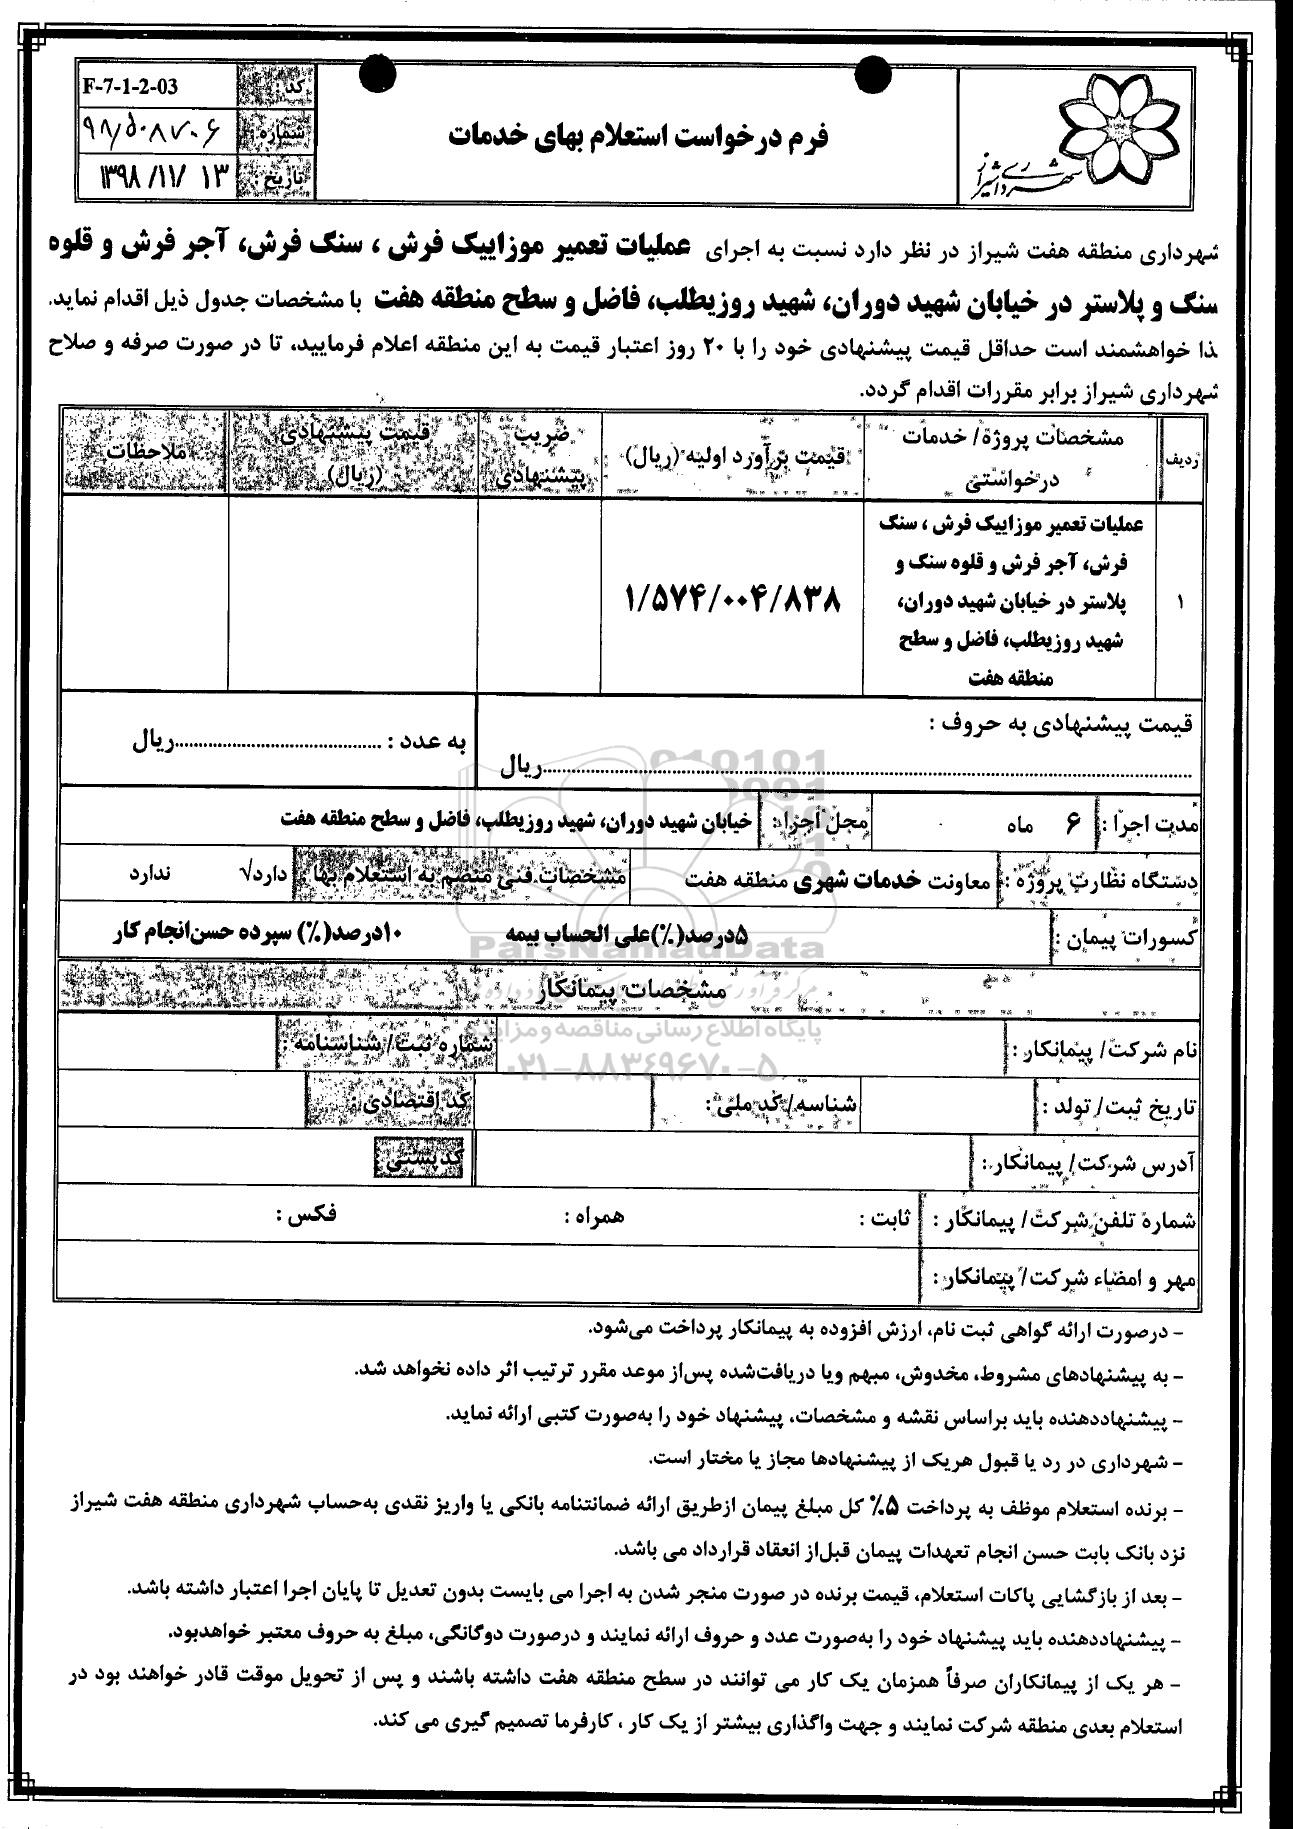 شهرداری شیراز
فرم درخواست استعلام بهای خدمات
کد : F-7-1-2-03
شماره : ۹۸/۵۰۸۷۰۶
تاریخ : ۱۳۹۸/۱۱/۱۳
شهرداری منطقه هفت شیراز در نظر دارد نسبت به اجرای عملیات تعمیر موزاییک فرش ، سنگ فرش، آجر فرش و قلوه
سنگ و پلاستر در خیابان شهید دوران، شهید روزیطلب، فاضل و سطح منطقه هفت با مشخصات جدول ذیل اقدام نماید.
لذا خواهشمند است حداقل قیمت پیشنهادی خود را با ۲۰ روز اعتبار قیمت به این منطقه اعلام فرمایید، تا در صورت صرفه و صلاح
شهرداری شیراز برابر مقررات اقدام گردد.
ردیف
مشخصات پروژه/ خدمات
درخواستی
قیمت برآورد اولیه (ریال)
ضریب
پیشنهادی
قیمت پیشنهادی
(ریال)
ملاحظات
۱
عملیات تعمیر موزاییک فرش ، سنگ
فرش، آجر فرش و قلوه سنگ و
پلاستر در خیابان شهید دوران،
شهید روزیطلب، فاضل و سطح
منطقه هفت
۱/۵۷۴/۰۰۴/۸۳۸
قیمت پیشنهادی به حروف :
..........ریال
به عدد : ..........ریال
مدت اجرا : ۶ ماه
محل اجرا: خیابان شهید دوران، شهید روزیطلب، فاضل و سطح منطقه هفت
دستگاه نظارت پروژه : معاونت خدمات شهری منطقه هفت
مشخصات فنی منضم به استعلام بها : دارد√ ندارد
کسورات پیمان : ۵درصد(%)علی الحساب بیمه ۱۰درصد(%) سپرده حسن‌انجام کار
مشخصات پیمانکار
نام شرکت/ پیمانکار : شماره ثبت/ شناسنامه :
تاریخ ثبت/ تولد : شناسه/ کد ملی : کد اقتصادی :
آدرس شرکت/ پیمانکار : کدپستی
شماره تلفن شرکت/ پیمانکار : ثابت : همراه : فکس :
مهر و امضاء شرکت/ پیمانکار:
ParsNamadData
پایگاه اطلاع رسانی مناقصه و مزایده
۰۲۱-۸۸۳۴۹۶۷۰-۵
- درصورت ارائه گواهی ثبت نام، ارزش افزوده به پیمانکار پرداخت می‌شود.
- به پیشنهادهای مشروط، مخدوش، مبهم ویا دریافت‌شده پس‌از موعد مقرر ترتیب اثر داده نخواهد شد.
- پیشنهاددهنده باید براساس نقشه و مشخصات، پیشنهاد خود را به‌صورت کتبی ارائه نماید.
- شهرداری در رد یا قبول هریک از پیشنهادها مجاز یا مختار است.
- برنده استعلام موظف به پرداخت ۵% کل مبلغ پیمان ازطریق ارائه ضمانتنامه بانکی یا واریز نقدی به‌حساب شهرداری منطقه هفت شیراز
نزد بانک بابت حسن انجام تعهدات پیمان قبل‌از انعقاد قرارداد می باشد.
- بعد از بازگشایی پاکات استعلام، قیمت برنده در صورت منجر شدن به اجرا می بایست بدون تعدیل تا پایان اجرا اعتبار داشته باشد.
- پیشنهاددهنده باید پیشنهاد خود را به‌صورت عدد و حروف ارائه نمایند و درصورت دوگانگی، مبلغ به حروف معتبر خواهدبود.
- هر یک از پیمانکاران صرفاً همزمان یک کار می توانند در سطح منطقه هفت داشته باشند و پس از تحویل موقت قادر خواهند بود در
استعلام بعدی منطقه شرکت نمایند و جهت واگذاری بیشتر از یک کار ، کارفرما تصمیم گیری می کند.